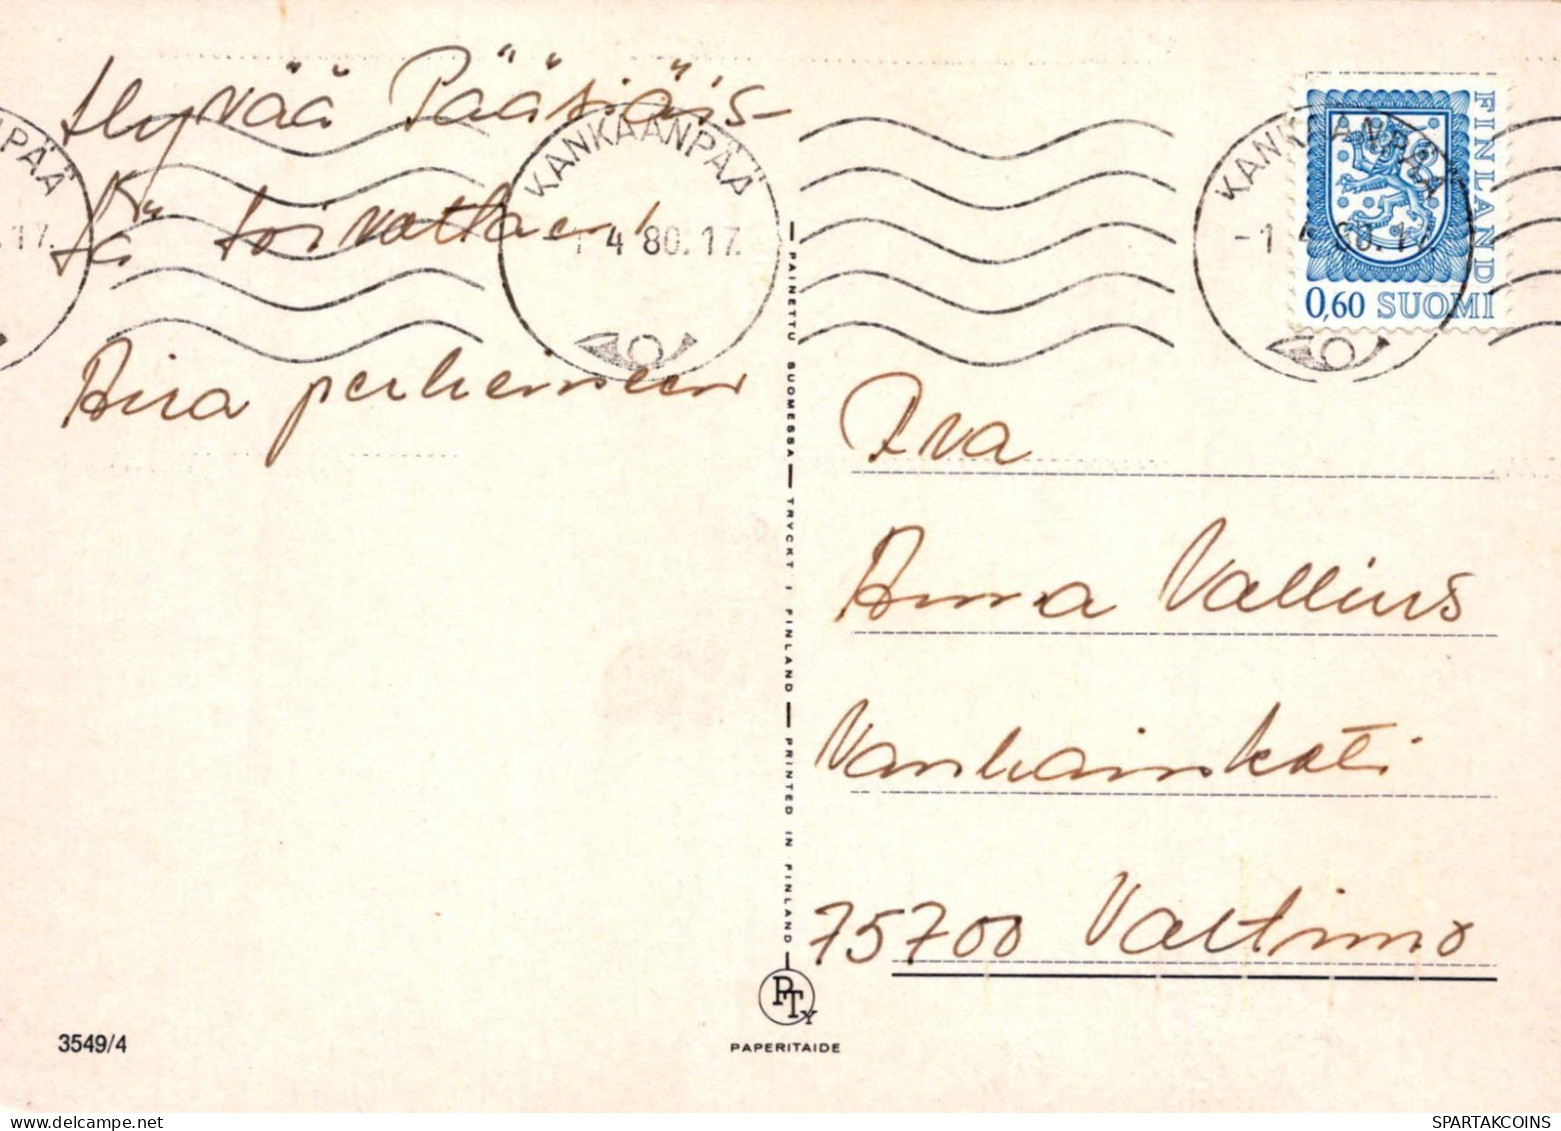 Hyvää Pääsiäis-
tä toivottaen
Aira perheineen
KANKAANPÄÄ
-1 4 80.17.
KANKAANPÄÄ
-1 4 80.17
PÄÄ
.17.
FINLAND
0,60 SUOMI
Rva
Anna Vallius
Vanhainkoti
75700 Valtimo
PAINETTU SUOMESSA — TRYCKT I FINLAND — PRINTED IN FINLAND
PTy
PAPERITAIDE
3549/4
SPARTAKCOINS